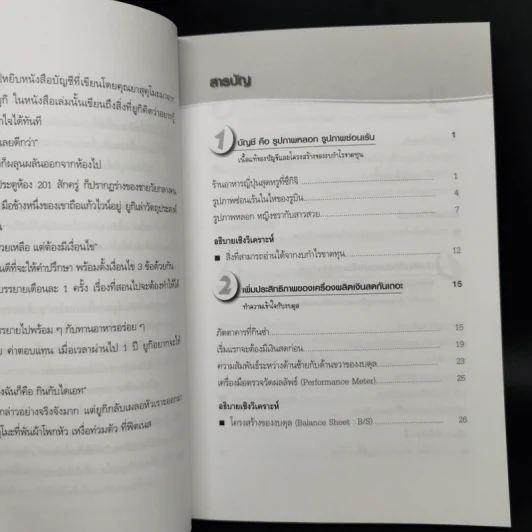 ปหยิบหนังสือบัญชีที่เขียนโดยคุณยาสุคุโมะมาจาก
กิ ในหนังสือเล่มนั้นเขียนถึงสิ่งที่ยูกิคิดว่าอยากรู้
าใจได้ทันที
เลยดีกว่า"
ก็ผลุนผลันออกจากห้องไป
ประตูห้อง 201 สักครู่ ก็ปรากฏร่างของชายวัยกลางคน
มือข้างหนึ่งของเขาถือแก้วไวน์อยู่ ยูกิเล่าวัตถุประสงค์
วยเหลือ แต่ต้องมีเงื่อนไข"
นดีที่จะให้คำปรึกษา พร้อมตั้งเงื่อนไข 3 ข้อด้วยกัน
บรรยายเดือนละ 1 ครั้ง เรื่องที่สอนไปจะต้องทำให้ได้
รรยายไปพร้อม ๆ กับทานอาหารอร่อย ๆ
ย ค่าตอบแทน เมื่อเวลาผ่านไป 1 ปี ยูกิอยากจะให้
งฉันก็คือ กินกับไดเอท"
กล่าวอย่างจริงจังมาก แต่ยูกิกลับเผลอหัวเราะออกมา
โมะที่พันผ้าโพกหัว เหงื่อท่วมตัว ที่ฟิตเนส
สารบัญ
1 บัญชี คือ รูปภาพหลอก รูปภาพซ่อนเร้น 1
เนื้อแท้ของบัญชีและโครงสร้างของงบกำไรขาดทุน
ร้านอาหารญี่ปุ่นสุดหรูที่ซึกิจิ 1
รูปภาพซ่อนเร้นในไหของรูบิน 4
รูปภาพหลอก หญิงชรากับสาวสวย 7
อธิบายเชิงวิเคราะห์
■ สิ่งที่สามารถอ่านได้จากงบกำไรขาดทุน 12
2 เพิ่มประสิทธิภาพของเครื่องผลิตเงินสดกันเถอะ 15
ทำความเข้าใจกับงบดุล
ภัตตาคารที่กินซ่า 15
เริ่มแรกจะต้องมีเงินสดก่อน 19
ความสัมพันธ์ระหว่างด้านซ้ายกับด้านขวาของงบดุล 23
เครื่องมือตรวจวัดผลลัพธ์ (Performance Meter) 25
อธิบายเชิงวิเคราะห์
■ โครงสร้างของงบดุล (Balance Sheet : B/S) 26